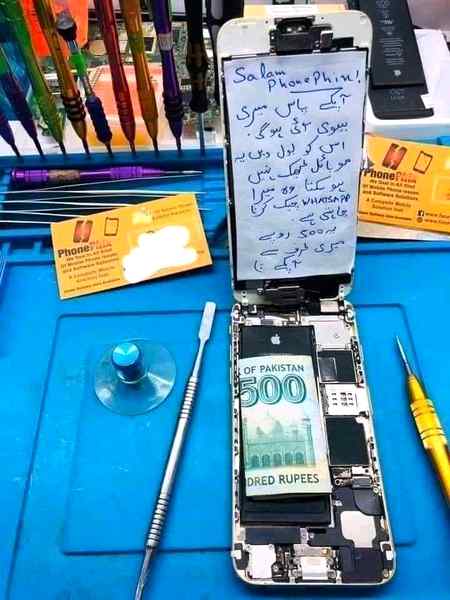 Salam
PhonePhix!
آپکے پاس میری
بیوی آئی ہوگی.
اس کو بول دیں یہ
موبائل ٹھیک نہیں
ہو سکتا وہ میرا
WHATSAPP چیک کرنا
چاہتی ہے
یہ 500 روپے
میری طرف سے
آپکے
Phone
We Deal In All Kind
Of Mobile Phone Issues
and Software Solutions
A Complete Mobile
Solution Hub
Phone
We Deal In All Kind
Of Mobile Phone Issues
and Software Solutions
A Complete Mobile
Solution Hub
OF PAKISTAN
500
DRED RUPEES